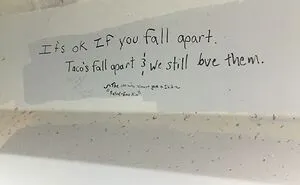 It's ok IF you fall apart.
Taco's fall apart & we still love them.
The